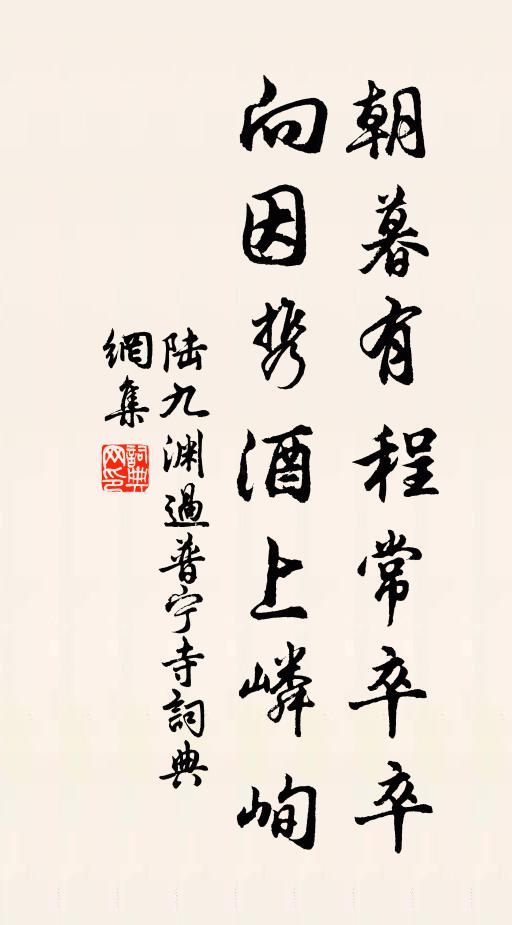 朝暮有程常卒卒
向因携酒上嶙峋
陆九渊過普宁寺詞典
網集
詞典网印